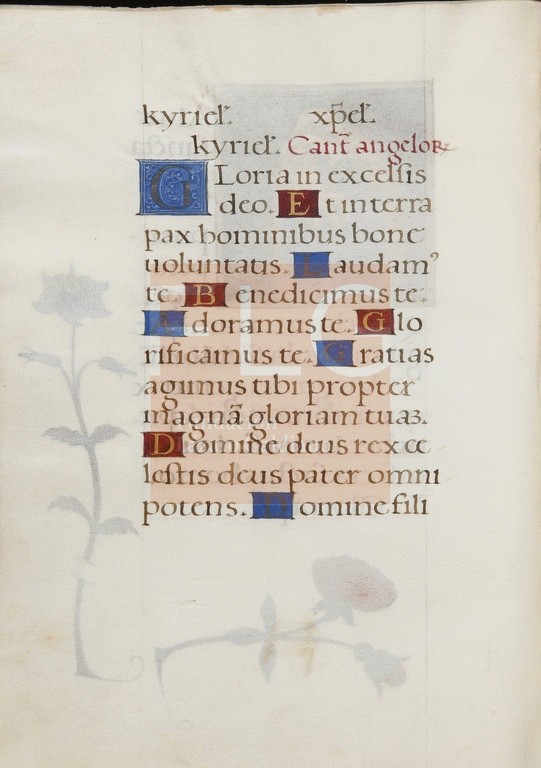 kyriel̃. xp̃el̃.
kyriel̃. Cant̃ angeloꝝ
GLoria in excelsis
deo. Et in terra
pax hominibus bone
uoluntatis. Laudamꝰ
te. Benedicimus te.
Adoramus te. Glo
rificamus te. Gratias
agimus tibi propter
magnã gloriam tuaʒ.
Domine deus rex ce
lestis deus pater omni
potens. Domine fili